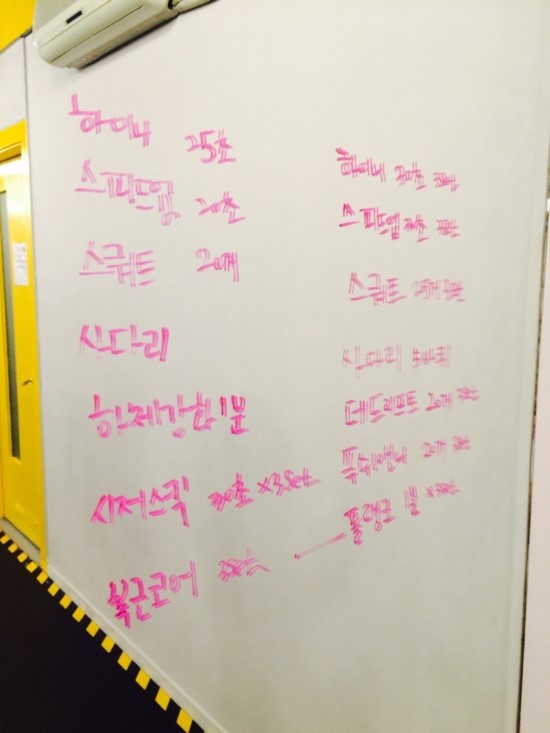 하이니 25초
스피드업 20초
스쿼트 20개
사다리
하체강화 1분
시저스킥 30초 x3set
복근코어 3set
하이니 30초 3set
스피드업 3set
스쿼트 25개
사다리 5바퀴
데드리프트 20개 3set
푸쉬앤니 20개 3set
플랭크 1분 x3set